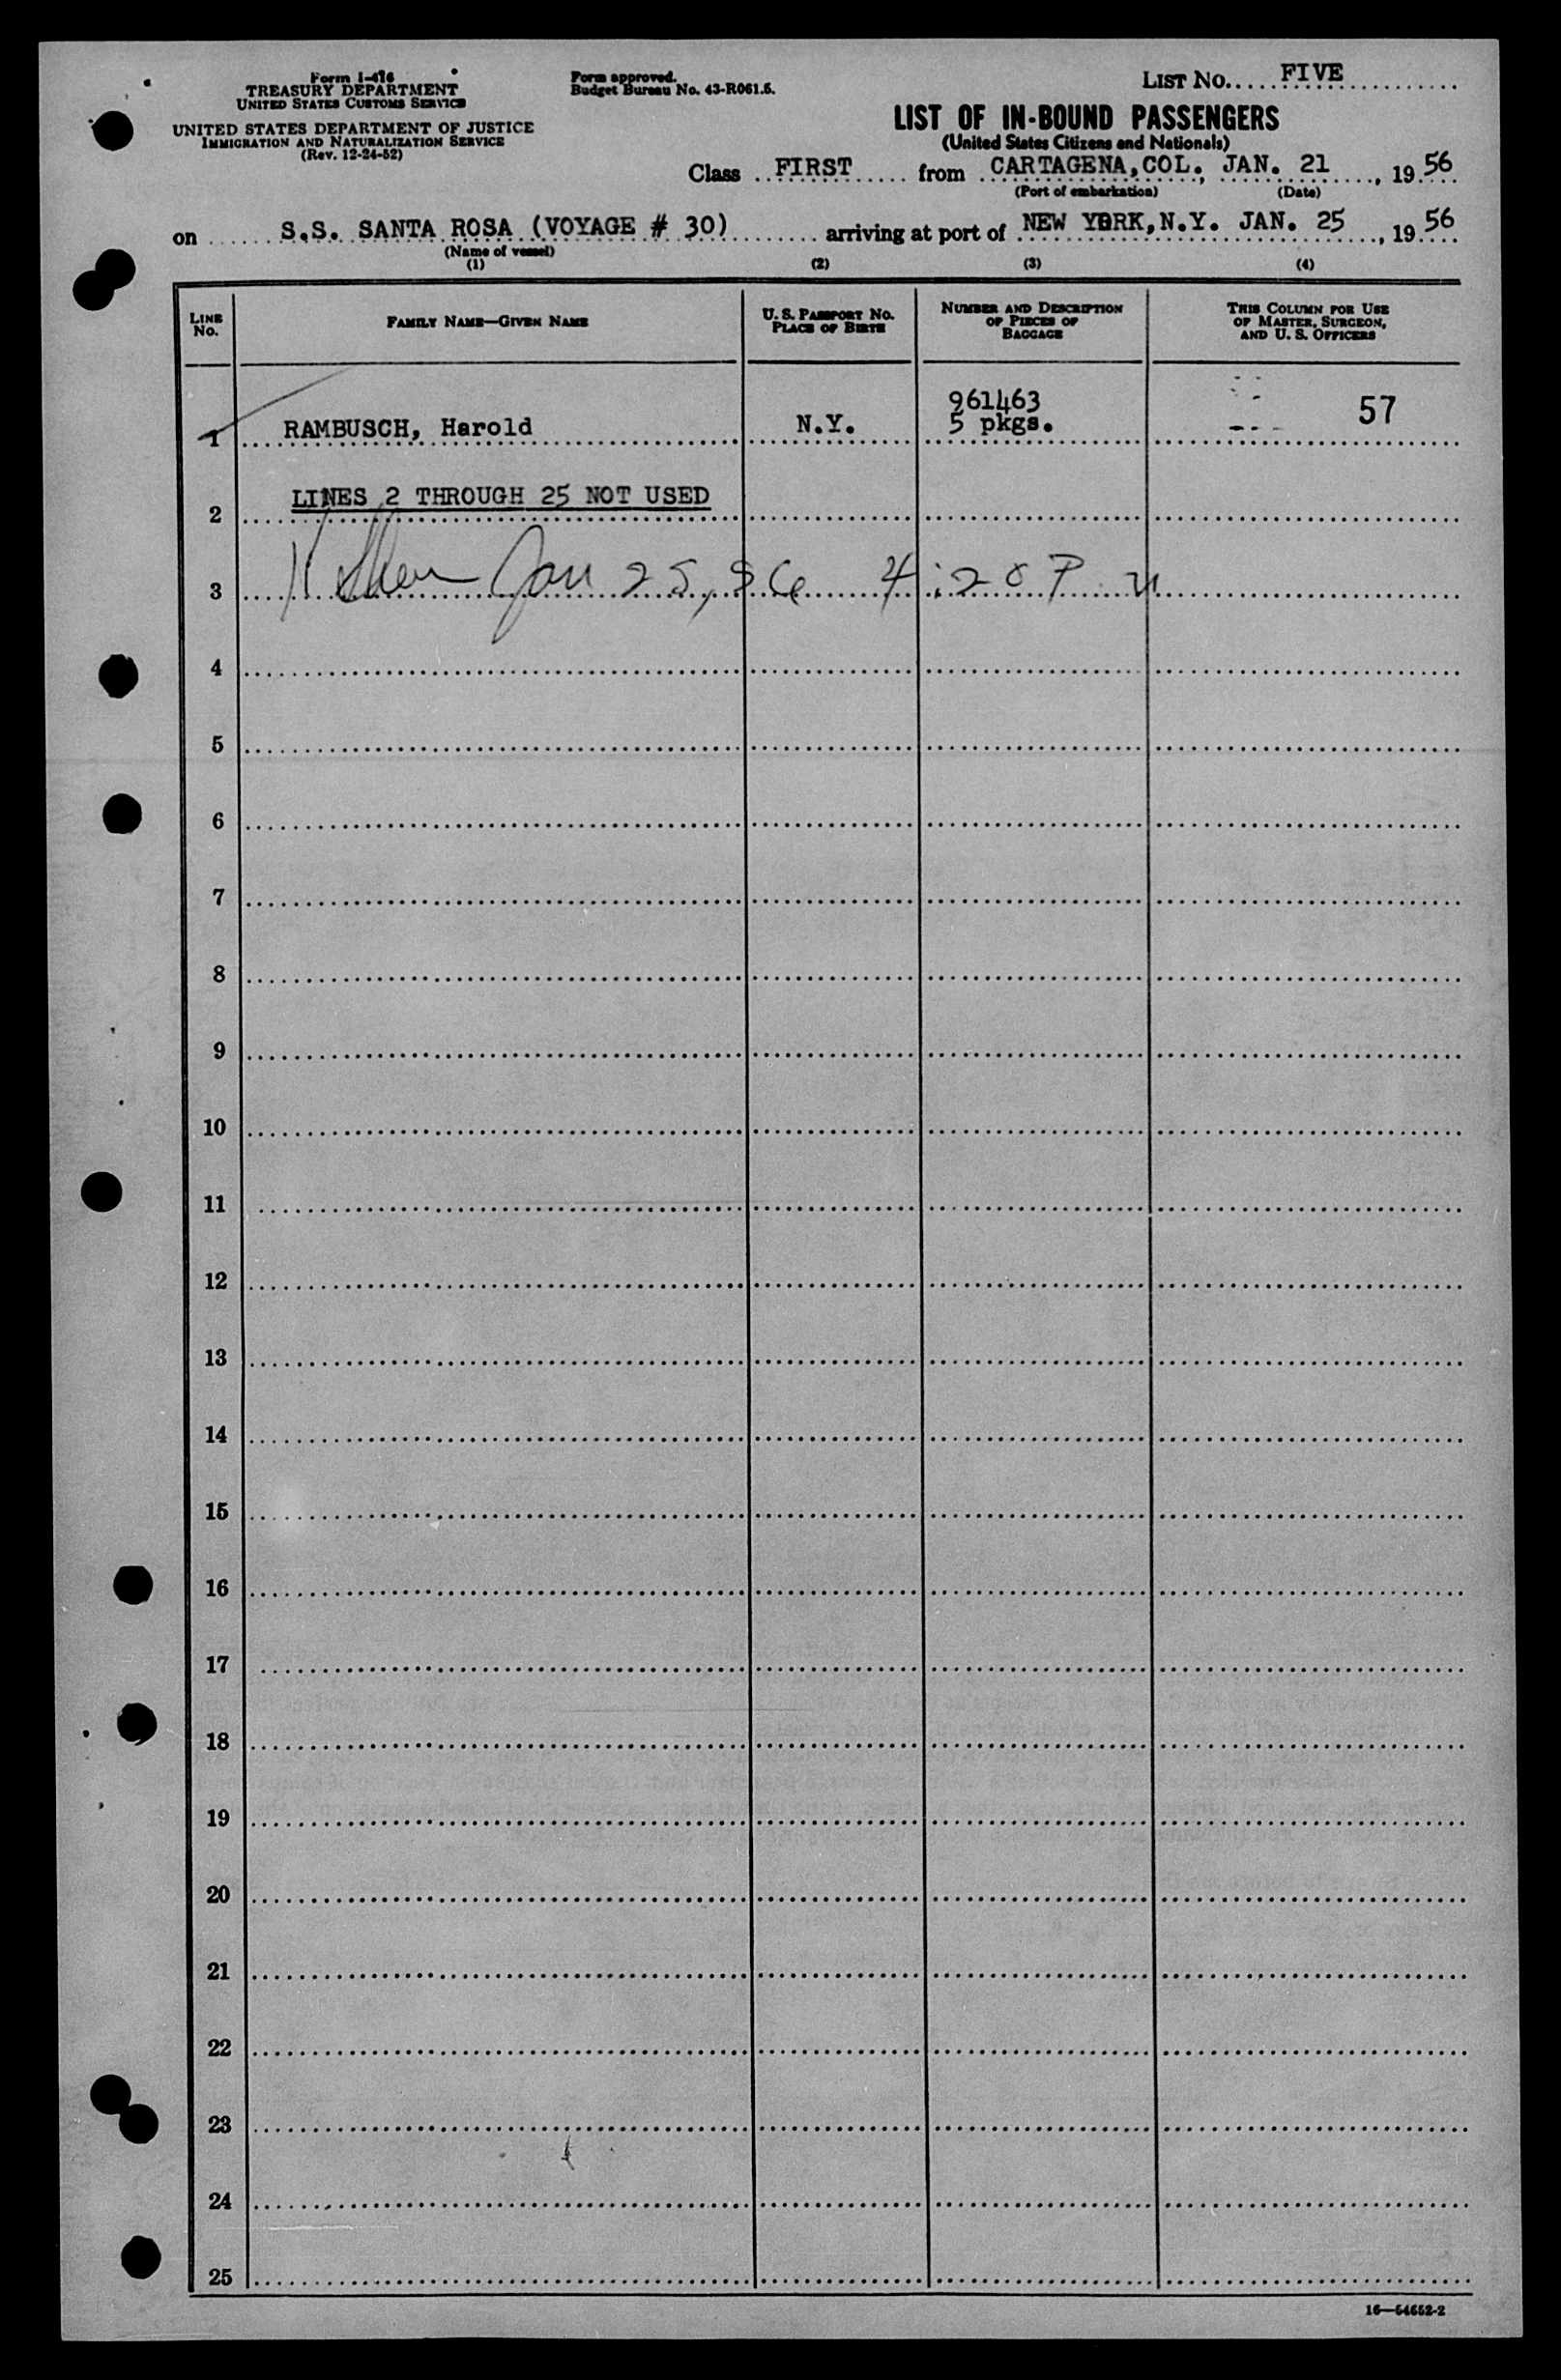 Form I-416
TREASURY DEPARTMENT
UNITED STATES CUSTOMS SERVICE
UNITED STATES DEPARTMENT OF JUSTICE
IMMIGRATION AND NATURALIZATION SERVICE
(Rev. 12-24-52)
Form approved.
Budget Bureau No. 43-R061.5.
LIST No. FIVE
LIST OF IN-BOUND PASSENGERS
(United States Citizens and Nationals)
Class FIRST from CARTAGENA, COL., JAN. 21, 1956
(Port of embarkation) (Date)
on S.S. SANTA ROSA (VOYAGE # 30) arriving at port of NEW YORK, N.Y. JAN. 25, 1956
(Name of vessel)
(1) (2) (3) (4)
LINE No. FAMILY NAME—GIVEN NAME U. S. PASSPORT No. PLACE OF BIRTH NUMBER AND DESCRIPTION OF PIECES OF BAGGAGE THIS COLUMN FOR USE OF MASTER, SURGEON, AND U. S. OFFICERS
961463
1 RAMBUSCH, Harold N.Y. 5 pkgs. 57
2 LINES 2 THROUGH 25 NOT USED
3 Jan 25, 56 4:20 P. M
4
5
6
7
8
9
10
11
12
13
14
15
16
17
18
19
20
21
22
23
24
25
16—64652-2